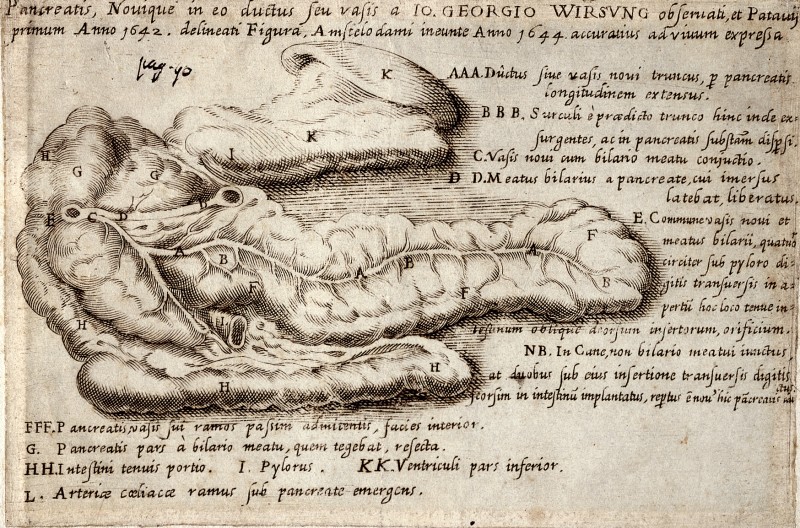 Pancreatis, Novique in eo ductus seu vasis a IO. GEORGIO WIRSVNG observati, et Patavij
primum Anno 1642. delineati Figura, Amstelodami ineunte Anno 1644. accuratius ad vivum expressa
pag. 90
AAA. Ductus sive vasis novi truncus, p pancreatis
longitudinem extensus.
BBB. Surculi è prædicto trunco hinc inde ex-
surgentes, ac in pancreatis substam dispsi.
C. Vasis novi cum bilario meatu conjuctio.
D D. Meatus bilarius a pancreate, cui imersus
latebat, liberatus.
E. Commune vasis novi et
meatus bilarii, quatuor
circiter sub pyloro di-
gitis transversis in a-
pertū hoc loco tenue in-
testinum oblique deorsum insertorum, orificium.
NB. In Cane, non bilario meatui iunctus,
at duobus sub eius insertione transversis digitis,
seorsim in intestinū implantatus, reptus è
FFF. Pancreatis, vasis sui ramos passim admitentis, facies interior.
G. Pancreatis pars à bilario meatu, quem tegebat, resecta.
HH. Intestini tenuis portio. I. Pylorus. KK. Ventriculi pars inferior.
L. Arteriæ cœliacæ ramus sub pancreate emergens.
K
K
I
H
G
G
E
C
D
D
A
B
F
A
B
F
A
F
B
H
L
H
H